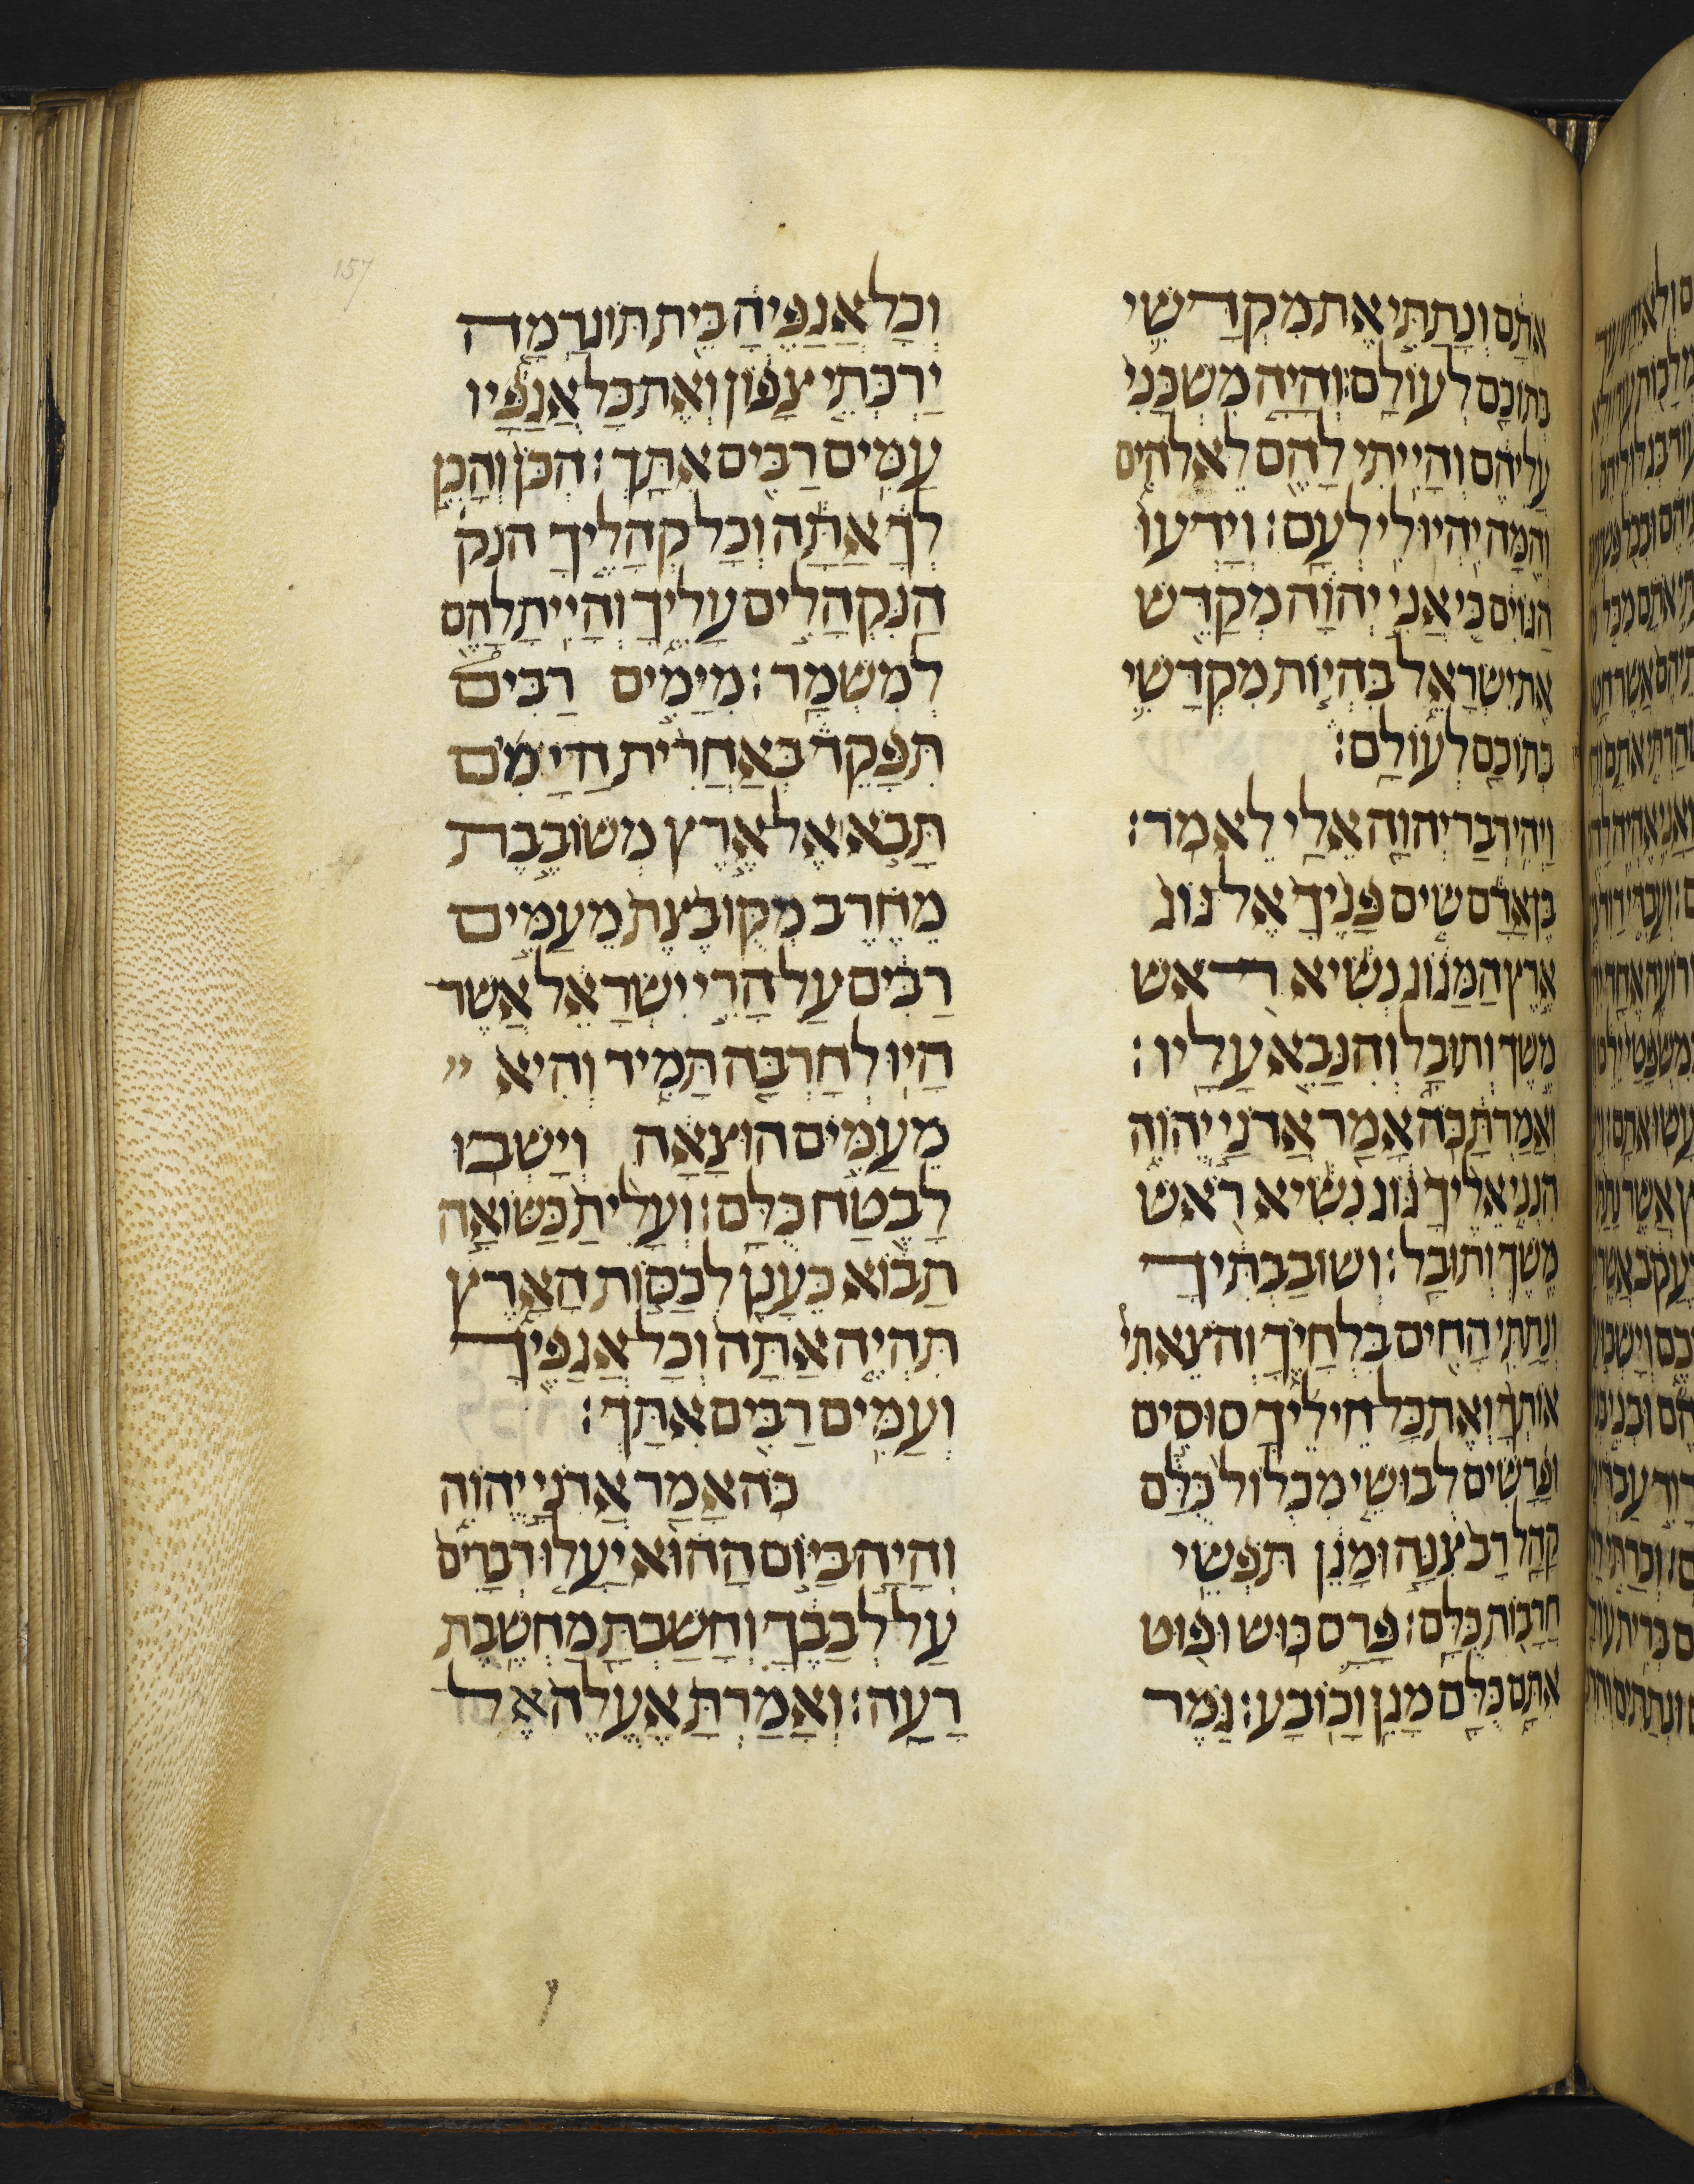 אֹתָם וְנָתַתִּי אֶת מִקְדָּשִׁי
בְּתוֹכָם לְעוֹלָם׃ וְהָיָה מִשְׁכָּנִי
עֲלֵיהֶם וְהָיִיתִי לָהֶם לֵאלֹהִים
וְהֵמָּה יִהְיוּ לִי לְעָם׃ וְיָדְעוּ
הַגּוֹיִם כִּי אֲנִי יְהוָה מְקַדֵּשׁ
אֶת יִשְׂרָאֵל בִּהְיוֹת מִקְדָּשִׁי
בְּתוֹכָם לְעוֹלָם׃
וַיְהִי דְבַר יְהוָה אֵלַי לֵאמֹר׃
בֶּן אָדָם שִׂים פָּנֶיךָ אֶל גּוֹג
אֶרֶץ הַמָּגוֹג נְשִׂיא רֹאשׁ
מֶשֶׁךְ וְתוּבָל וְהִנָּבֵא עָלָיו׃
וְאָמַרְתָּ כֹּה אָמַר אֲדֹנָי יֱהוִה
הִנְנִי אֵלֶיךָ גּוֹג נְשִׂיא רֹאשׁ
מֶשֶׁךְ וְתוּבָל׃ וְשׁוֹבַבְתִּיךָ
וְנָתַתִּי חַחִים בִּלְחָיֶיךָ וְהֹצֵאתִי
אוֹתְךָ וְאֶת כָּל חֵילֶיךָ סוּסִים
וּפָרָשִׁים לְבוּשֵׁי מִכְלוֹל כֻּלָּם
קָהָל רָב צִנָּה וּמָגֵן תֹּפְשֵׂי
חֲרָבוֹת כֻּלָּם׃ פָּרַס כּוּשׁ וּפוּט
אִתָּם כֻּלָּם מָגֵן וְכוֹבָע׃ גֹּמֶר
וְכָל אֲגַפֶּיהָ בֵּית תּוֹגַרְמָה
יַרְכְּתֵי צָפוֹן וְאֶת כָּל אֲגַפָּיו
עַמִּים רַבִּים אִתָּךְ׃ הִכֹּן וְהָכֵן
לְךָ אַתָּה וְכָל קְהָלֶיךָ הנק
הַנִּקְהָלִים עָלֶיךָ וְהָיִיתָ לָהֶם
לְמִשְׁמָר׃ מִיָּמִים רַבִּים
תִּפָּקֵד בְּאַחֲרִית הַיָּמִים
תָּבֹא אֶל אֶרֶץ מְשׁוֹבֶבֶת
מֵחֶרֶב מְקֻובֶּצֶת מֵעַמִּים
רַבִּים עַל הָרֵי יִשְׂרָאֵל אֲשֶׁר
הָיוּ לְחָרְבָּה תָּמִיד וְהִיא
מֵעַמִּים הוּצָאָה וְיָשְׁבוּ
לָבֶטַח כֻּלָּם׃ וְעָלִיתָ כַּשּׁוֹאָה
תָבוֹא כֶּעָנָן לְכַסּוֹת הָאָרֶץ
תִּהְיֶה אַתָּה וְכָל אֲגַפֶּיךָ
וְעַמִּים רַבִּים אִתָּךְ׃
כֹּה אָמַר אֲדֹנָי יֱהוִה
וְהָיָה בַּיּוֹם הַהוּא יַעֲלוּ דְבָרִים
עַל לְבָבֶךָ וְחָשַׁבְתָּ מַחֲשֶׁבֶת
רָעָה׃ וְאָמַרְתָּ אֶעֱלֶה אֶל
157